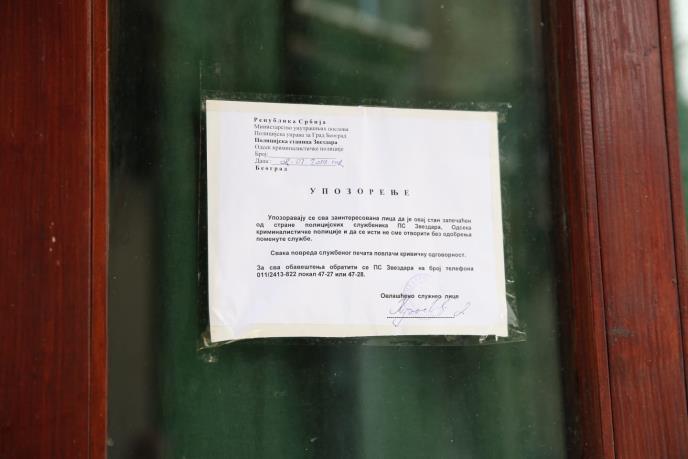 Република Србија
Министарство унутрашњих послова
Полицијска управа за Град Београд
Полицијска станица Звездара
Одсек криминалистичке полиције
Број:
Дана:
Београд
УПОЗОРЕЊЕ
Упозоравају се сва заинтересована лица да је овај стан запечаћен
од стране полицијских службеника ПС Звездара, Одсека
криминалистичке полиције и да се исти не сме отворити без одобрења
поменуте службе.
Свака повреда службеног печата повлачи кривичну одговорност.
За сва обавештења обратити се ПС Звездара на број телефона
011/2413-822 локал 47-27 или 47-28.
Овлашћено службено лице